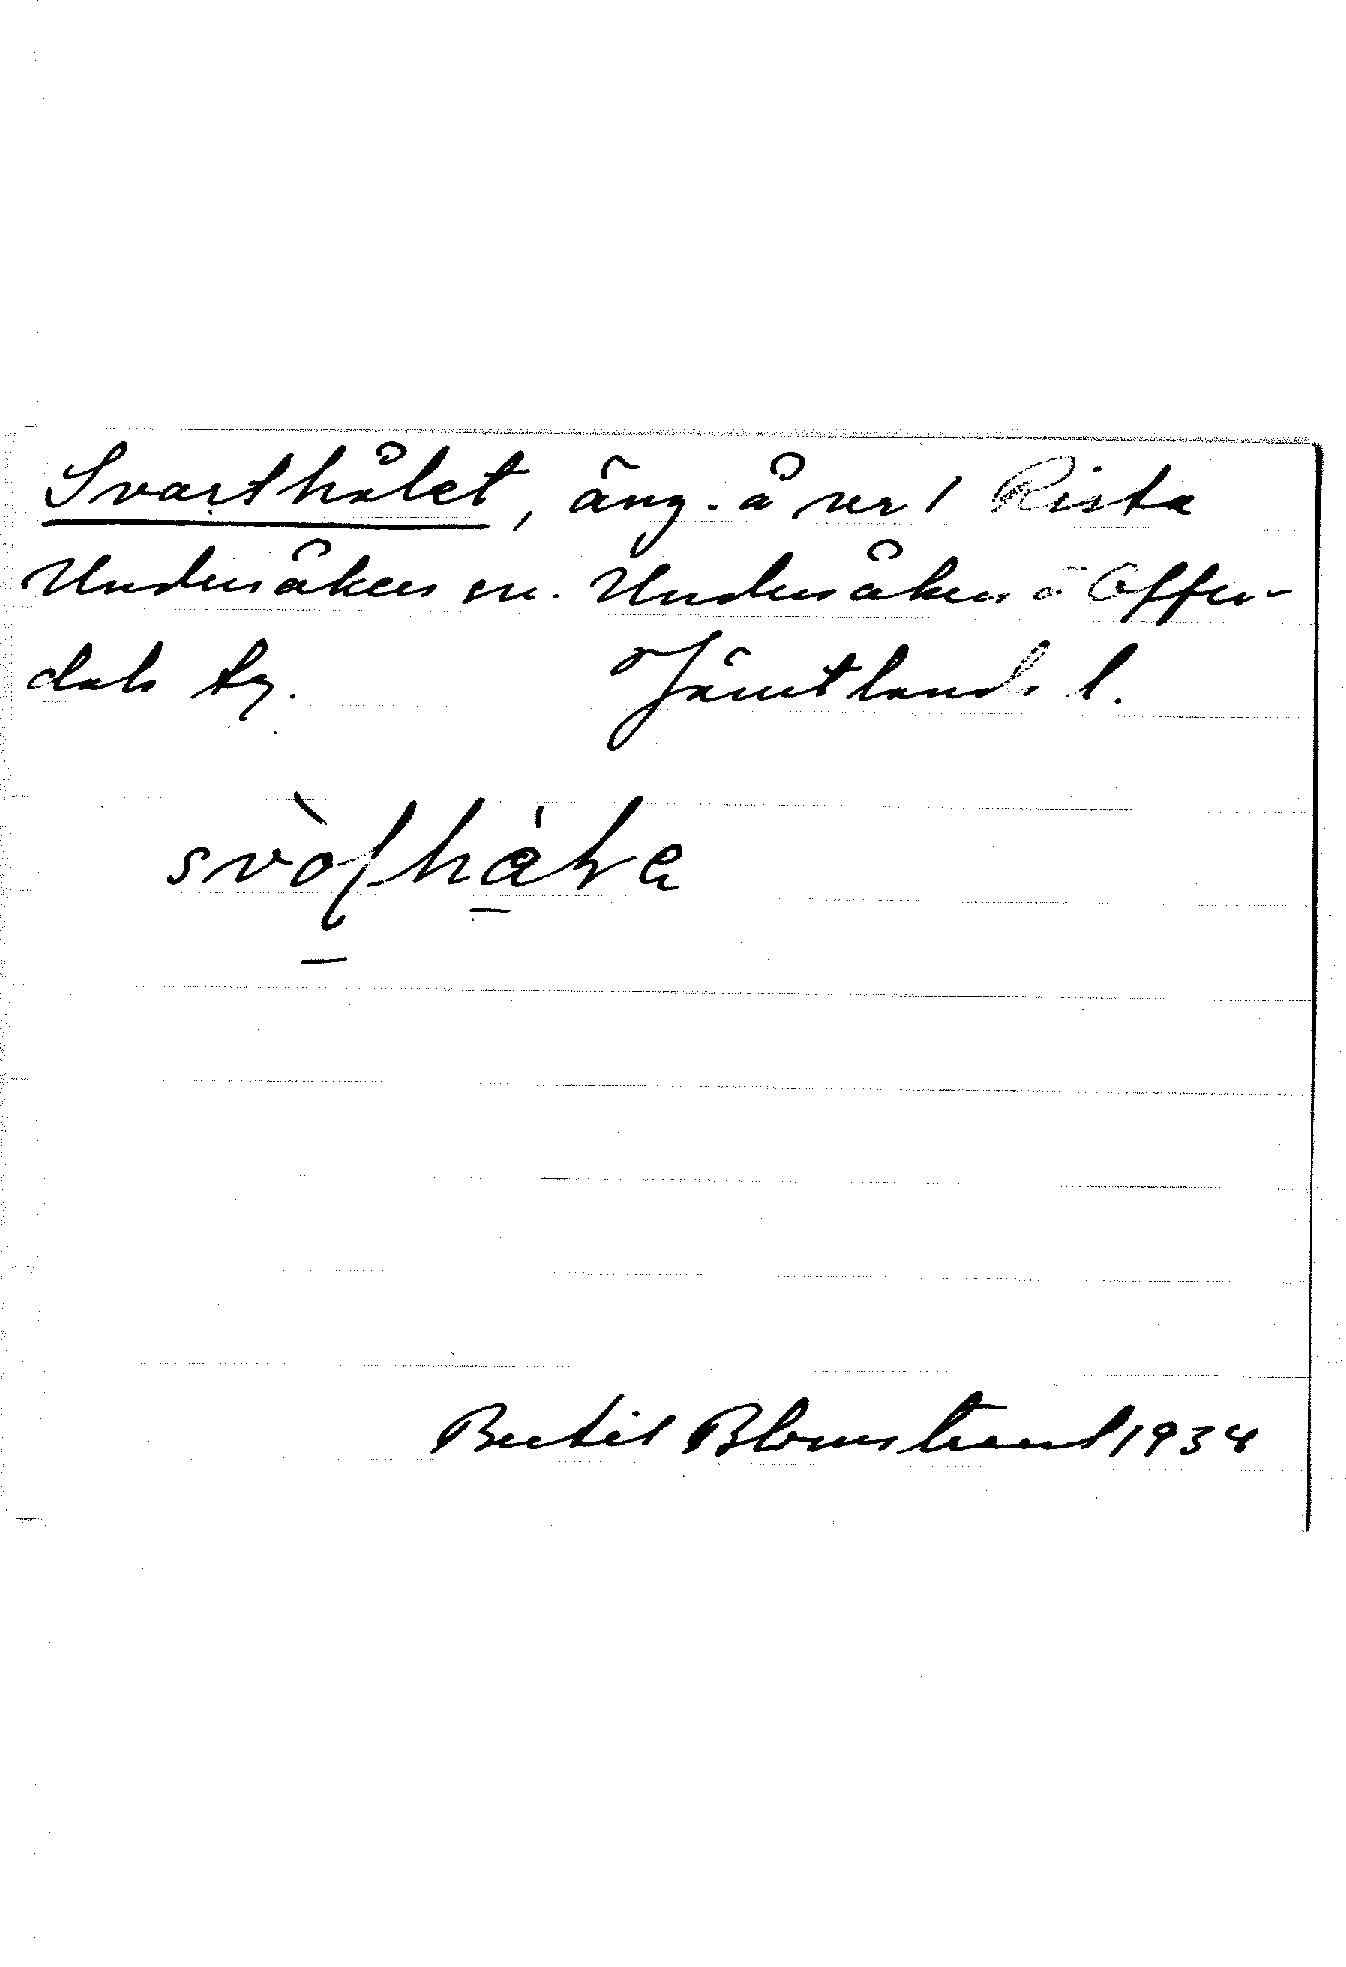 Svarthålet, äng. å nr 1 Rista
Undersåkers sn. Undersåkers o Offer-
dals tg.  Jämtlands l.
Bertil Blomstrand 1934